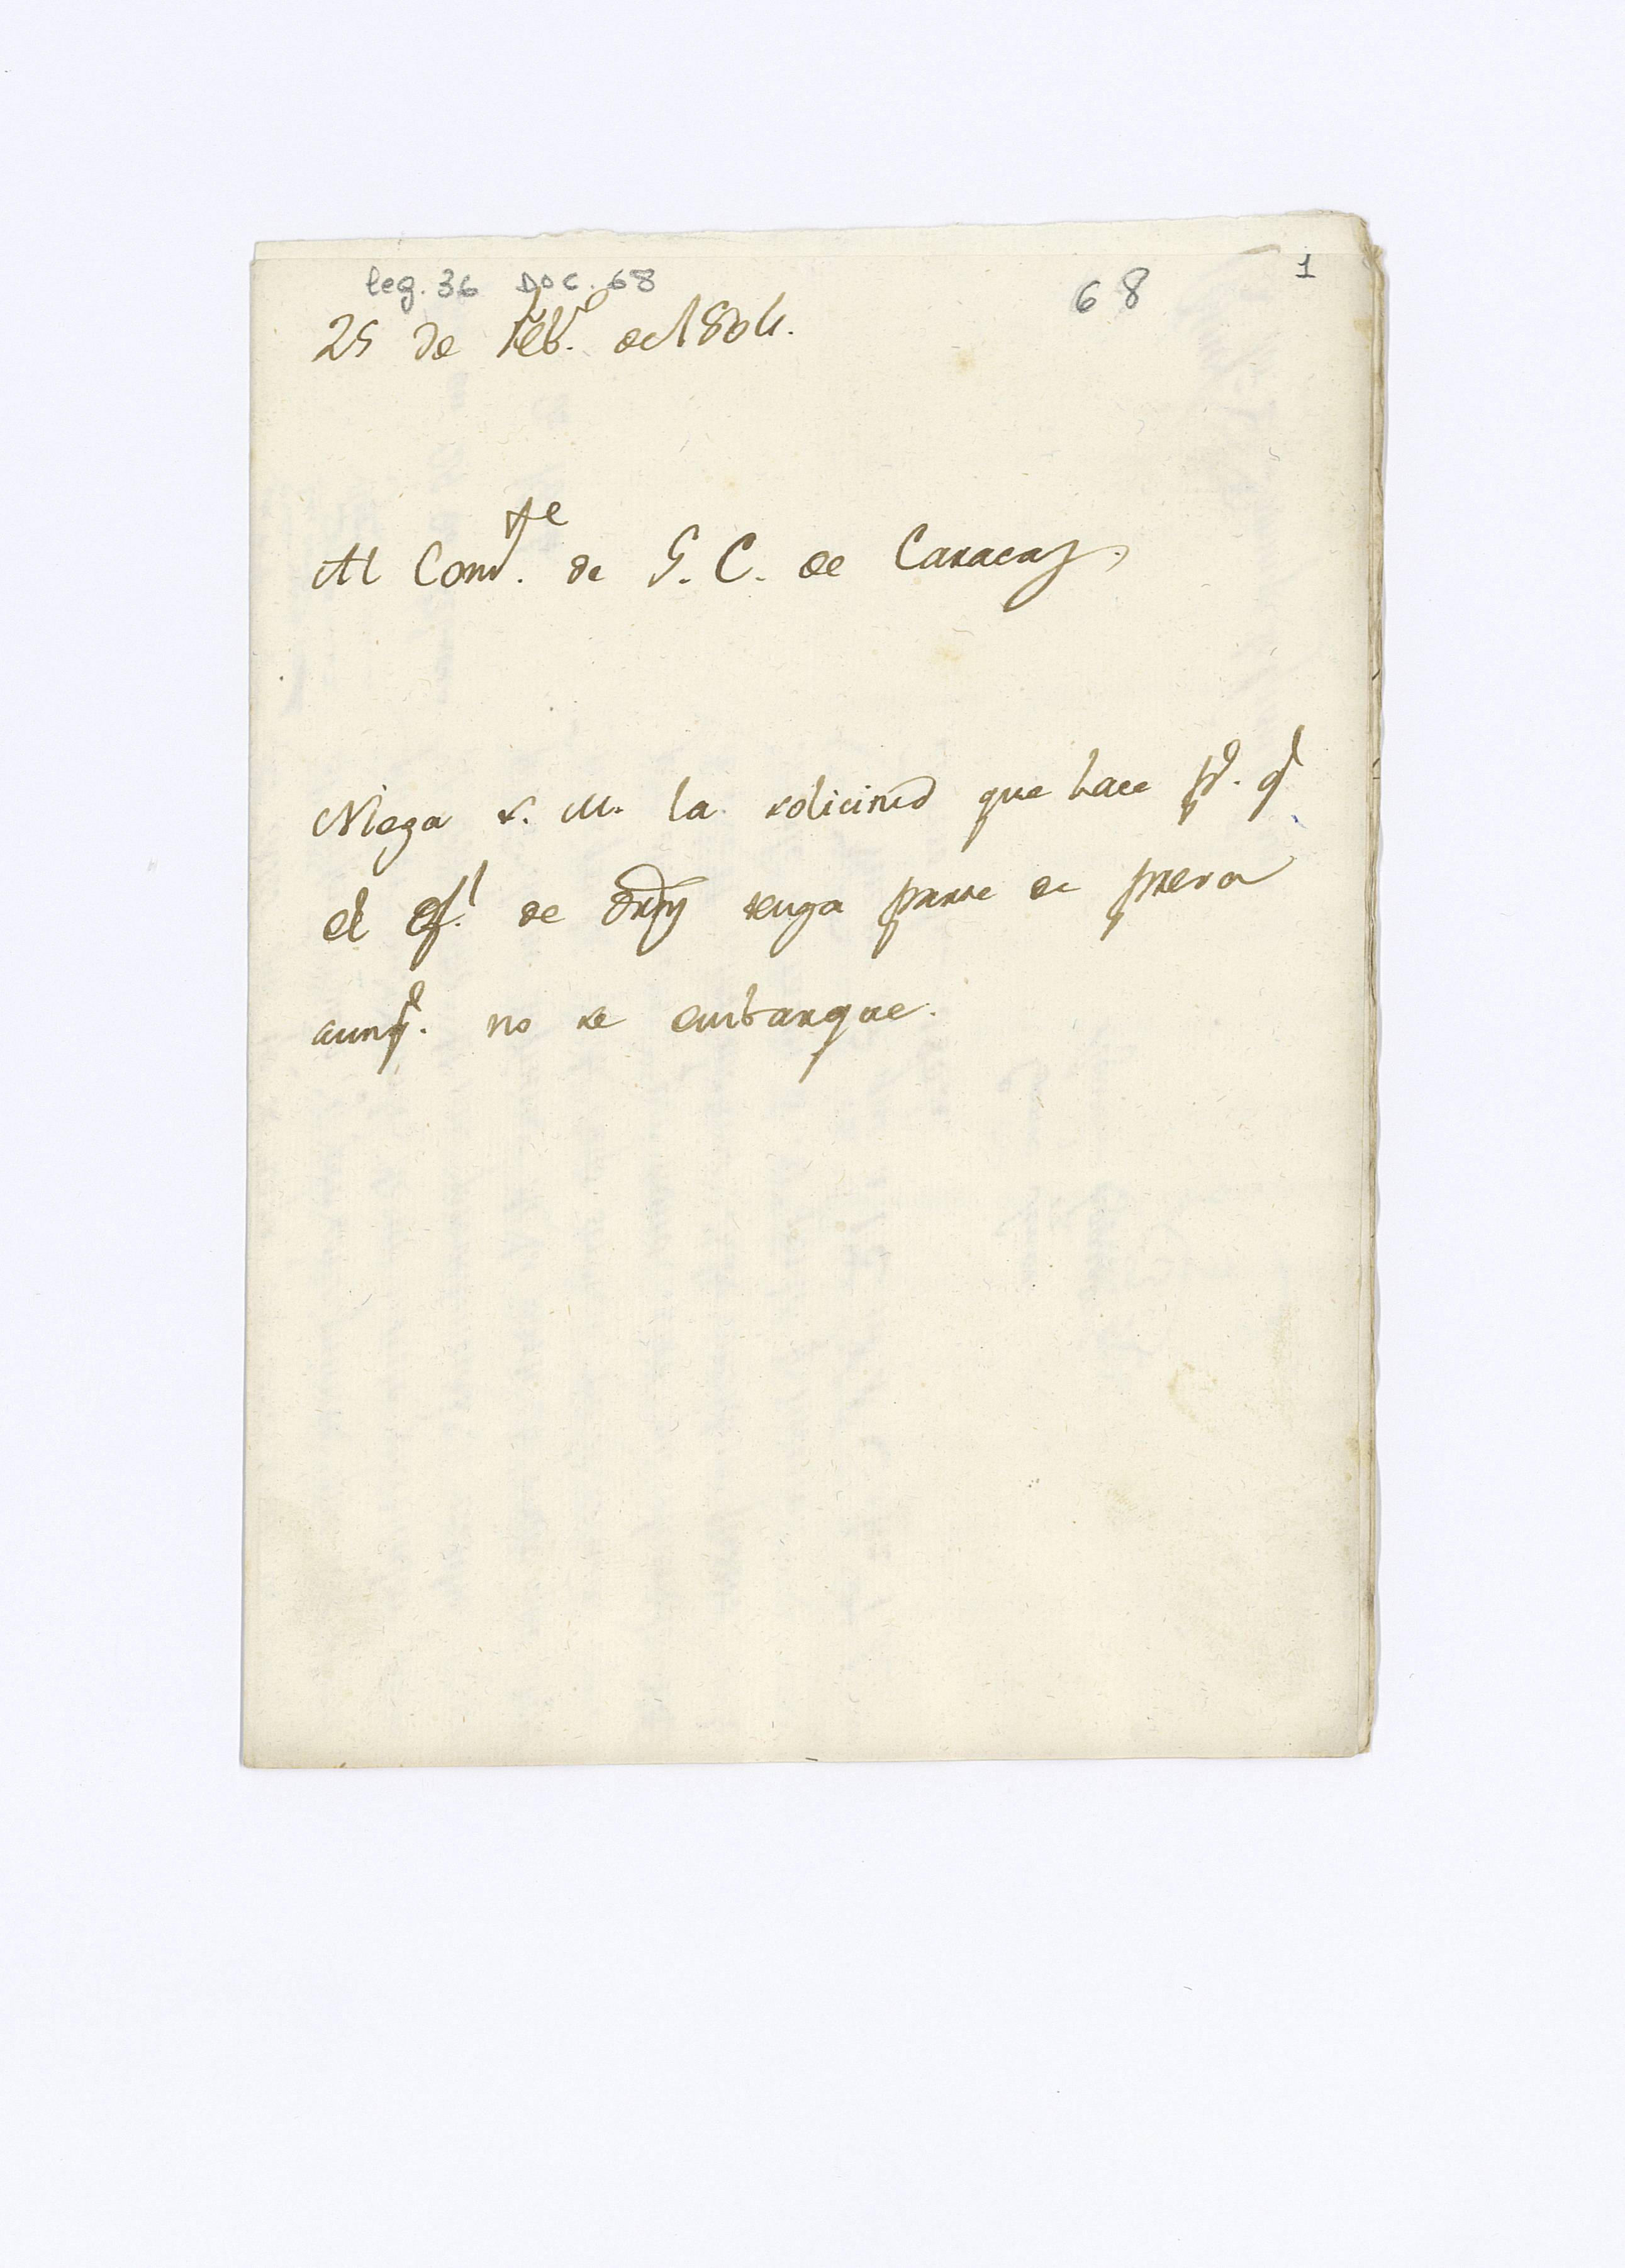 leg. 36 DOC. 68
68
1
25 de Febº. de 1804.
Al Comᵗᵉ. de G. C. de Caracas.
Niega S. M. la solicitud que hace pª. qᵉ
el Ofˡ. de Orns tenga parte de presa
aunqᵉ. no se embarque.